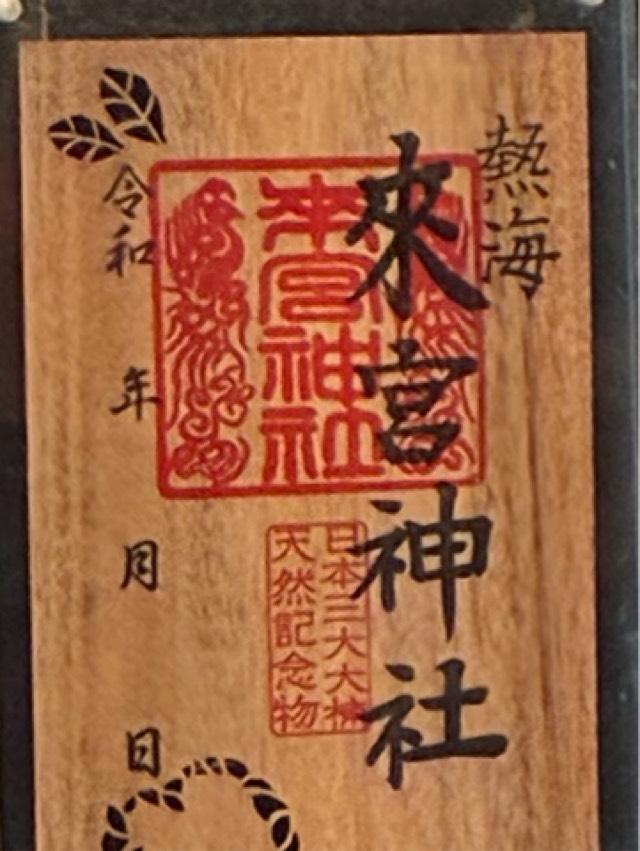 熱海
來宮神社
来宮神社
日本三大大楠
天然記念物
令和 年 月 日